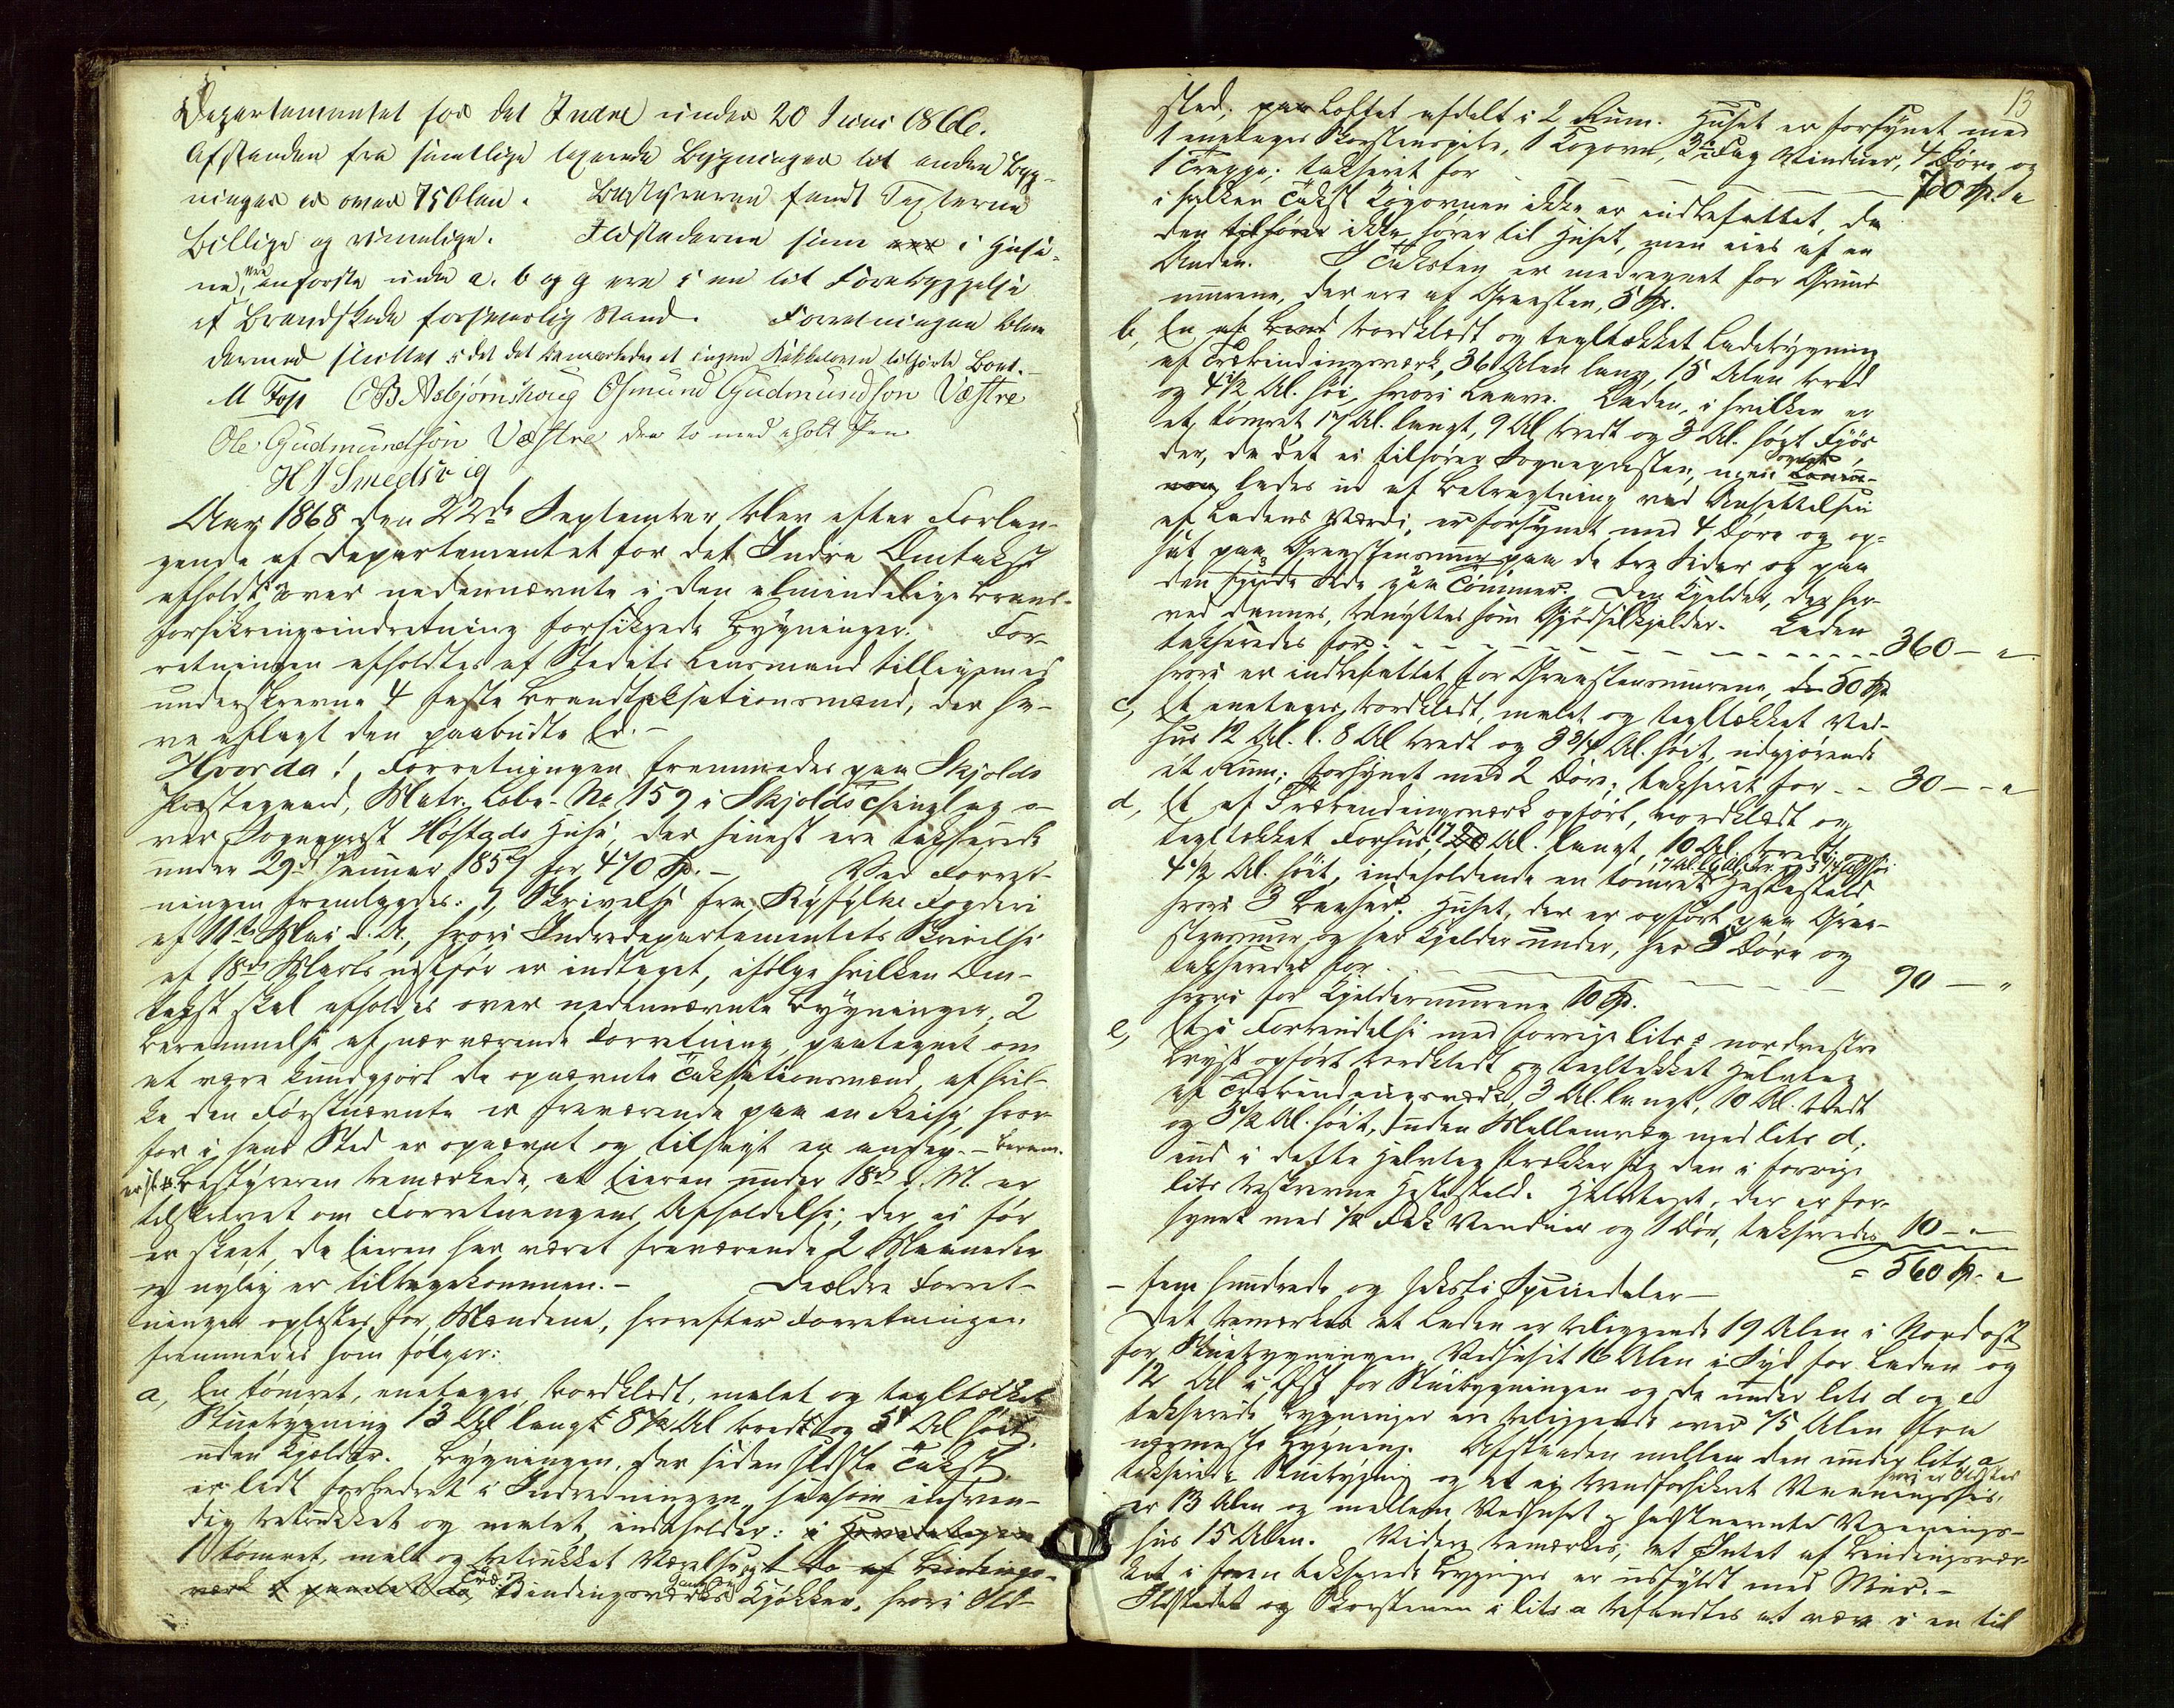 Departementet for det Indre under 20 Juni 1866.
Afstanden fra samtlige taxerede Bygninger til andre Byg-
ninger er over 75 Alen. Bestyreren fandt Taxterne
billige og rimelige. Ildstederne som ere i Huse-
ne, anførte under a. b og g ere i en til Forebyggelse
af Brandskade forsvarlig Stand. Forretningen blev
dermed sluttet idet det bemærkedes at ingen Kakkelovn tilhørte Bort.
M Fop O B Asbjørnshoug Osmund Gudmundson Væstre
Ole Gudmundson Væstre den to med eholt Pen
H J Smedsvig
Aar 1868 den 22de September blev efter Forlan-
gende af Departementet for det Indre Omtakst
afholdt over nedennævnte i den almindelige Brand-
forsikringsindretning forsikrede Bygninger. For-
retningen afholdtes af Stedets Lensmand tilligemed
underskrevne 4 faste Brandtaksationsmænd, der ha-
ve aflagt den paabudte Ed. -
Hvorda! Forretningen fremmedes paa Skjolds
Præstegaard, Matr. Løbe-No 159 i Skjolds Thinglag o-
ver Sogneprest Høstads Huse, der sinest ere takserede
under 29de Januar 1857 for 470 Sp. - Ved Forret-
ningen fremlagdes: 1, Skrivelse fra Ryfylke Fogderi
af 11te Mai d. A., hvori Indredepartementets Skrivelse
af 18de Marts næstfør er indtaget, ifølge hvilken Om-
takst skal afholdes over nedennævnte Bygninger, 2
Berammelse af nærværende Forretning, paategnet om
at være kundgjort de opnævnte Taksationsmænd, af hvil-
ke den Førstnævnte er fraværende paa en Reise, hvor-
for i hans Sted er opnævnt og tilsagt en anden. - Beram.
Bestyreren bemærkede, at Eieren under 18de d. M. er
tilskrevet om Forretningens Afholdelse, der ei før
er skeet, da Eieren har været fraværende 2 Maaneder
og nylig er tilbagekommen. - De ældre Forret-
ninger oplæstes for Mændene, hvorefter Forretningen
fremmedes som følger:
a, En tømret, enetages, bordklædt, malet og tegltækket
Stuebygning 13 Al langt 8 1/2 Al bredt og 5 Al høit
uden Kjelder. Bygningen, der siden sidste Takst
er lidt forbedret i Indredningen, saasom indven-
dig betrukket og malet, indeholder: i Hovedetagen
1 tømret, malt og betrukket Værelse, af Bindings-
værk Bindingsværks Kjøkken, hvori Ild-
13
sted; paa Loftet afdelt i 2 Rum. Huset er forsynet med
1 enetages Skorstenspibe, 1 Kogovn, 3 Fag Vinduer, 4 Døre og
1 Trappe; takseret for - - - 70 Sp. "
i hvilken Takst Kogovnen ikke er indbefattet, da
den tilhører ikke hører til Huset, men eies af en
Anden. I Taksten er medregnet for Grund-
murene, der ere af Graasten, 5 Sp.
b, En af bord bordklædt og tegltækket Ladebygning
af Træbindingsværk, 36 Alen lang, 15 Alen bred
og 4 1/2 Al. høi, hvori Laave. Laden, i hvilken er
et tømret 17 Al. langt, 9 Al bredt og 3 Al. høgt Fjøs
der, da det ei tilhører Sognepresten, men
lades ud af Betragtning ved Ansættelsen
af Ladens Værdi, er forsynet med 4 Døre og op-
sat paa Graastensmur paa de tre Sider og paa
den syndre Side paa Tømmer. Den Kjelder, der her-
ved dannes, benyttes som Gjødselkjelder. Laden
takseredes for - - - 360 - "
hvori er indbefattet for Graastensmurene, 50 Sp
c, Et enetages, bordklædt, malet og tegltækket Ved-
hus 12 Al. l. 8 Al bredt og 3 3/4 Al. høit, udgjørende
ét Rum; forsynet med 2 Døre; takseret for - - 30 - - "
d, Et af Træbindingsværk opført, bordklædt og
tegltækket Forhus, 17 Al. langt, 10 Al. bredt og
4 1/2 Al. høit, indeholdende en tømret Hestestald
hvori 3 Baaser. Huset, der er opført paa Graa-
stensmur og har Kjelder under, har 5 Døre og
takseredes for - - - 90 - "
hvori for Kjeldermurene 10 Sp.
e, Et i Forbindelse med forrige lits nordvestre
Bryst opført bordklædt og tegltækket Halvtag
af Træbindingsværk, 3 Al. langt, 10 Al. bredt
og 3 1/2 Al. høit, uden Mellemvæg med lits d;
ind i dette Halvtag strækker sig den i forrige
lits beskrevne Hestestald. Halvtaget, der er for-
synet med 1/2 Fak Vinduer og 1 Dør, takseredes 10 - "
= 560 Sp. "
- fem hundrede og seksti Speciedaler -
Det bemærkes at Laden er beliggende 19 Alen i Nordost
for Stuebygningen Vedhuset 16 Alen i Syd for Laden og
12 Al i Øst for Stuebygningen og de under lits d og e
takserede Bygninger ere beliggende over 75 Alen fra
nærmeste Bygning. Afstanden mellem den under lits a
takserede Stuebygning og et ei brandforsikret Vaaningshus, hvori er Ildsted
er 13 Alen og mellem Vedhuset og sidstnævnte Vaanings-
hus 15 Alen. Videre bemærkes, at Intet af Bindingsvær-
ket i foran takserede Bygninger er udfyldt med Mur. -
Ildstedet og Skorstenen i lits a befandtes at være i en til